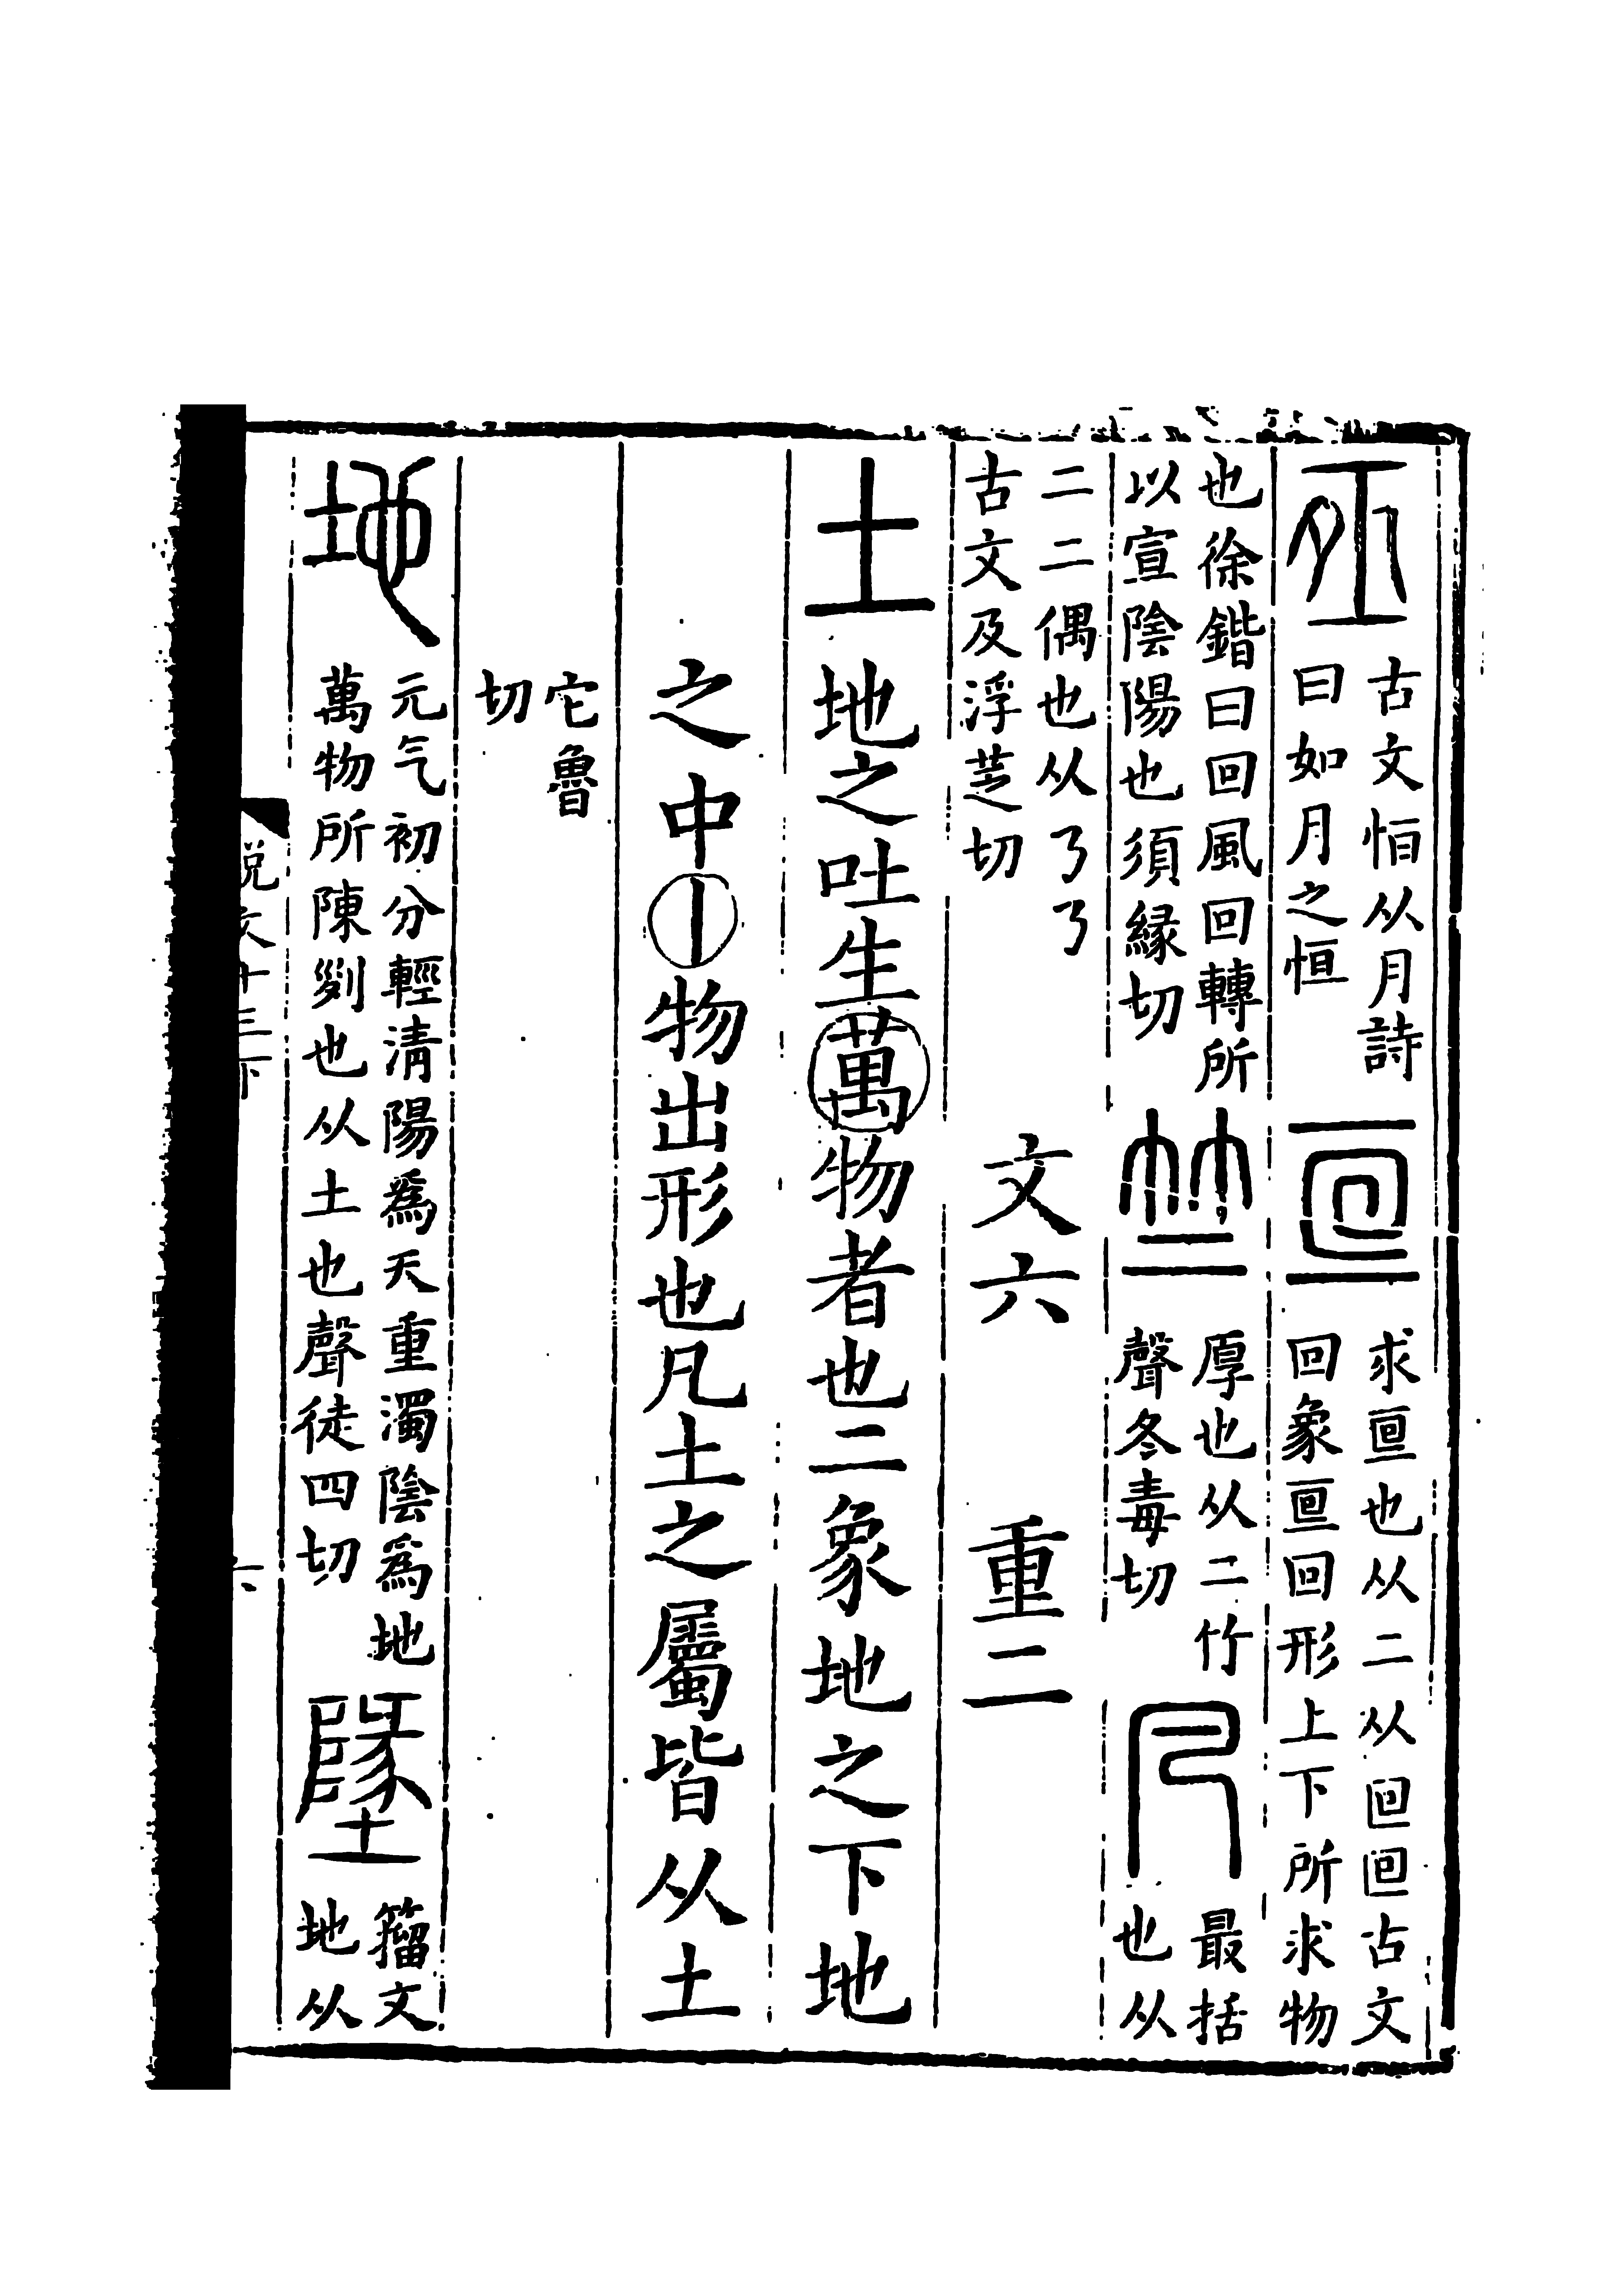 𠄨古文恒从月詩
曰如月之恒
亘求亘也从二从囘囘古文
回象亘回形上下所求物
也徐鍇曰回風回轉所
以宣陰陽也須緣切
竺厚也从二竹
聲冬毒切
凡最括
也从
二二偶也从㇋㇋
古文及浮芝切
文六　重二
土地之吐生萬物者也二象地之下地
之中丨物出形也凡土之屬皆从土
它魯
切
地元气初分輕清陽爲天重濁陰爲地
萬物所陳𠛱也从土也聲徒四切
墬籒文
地从
說文十三下
六